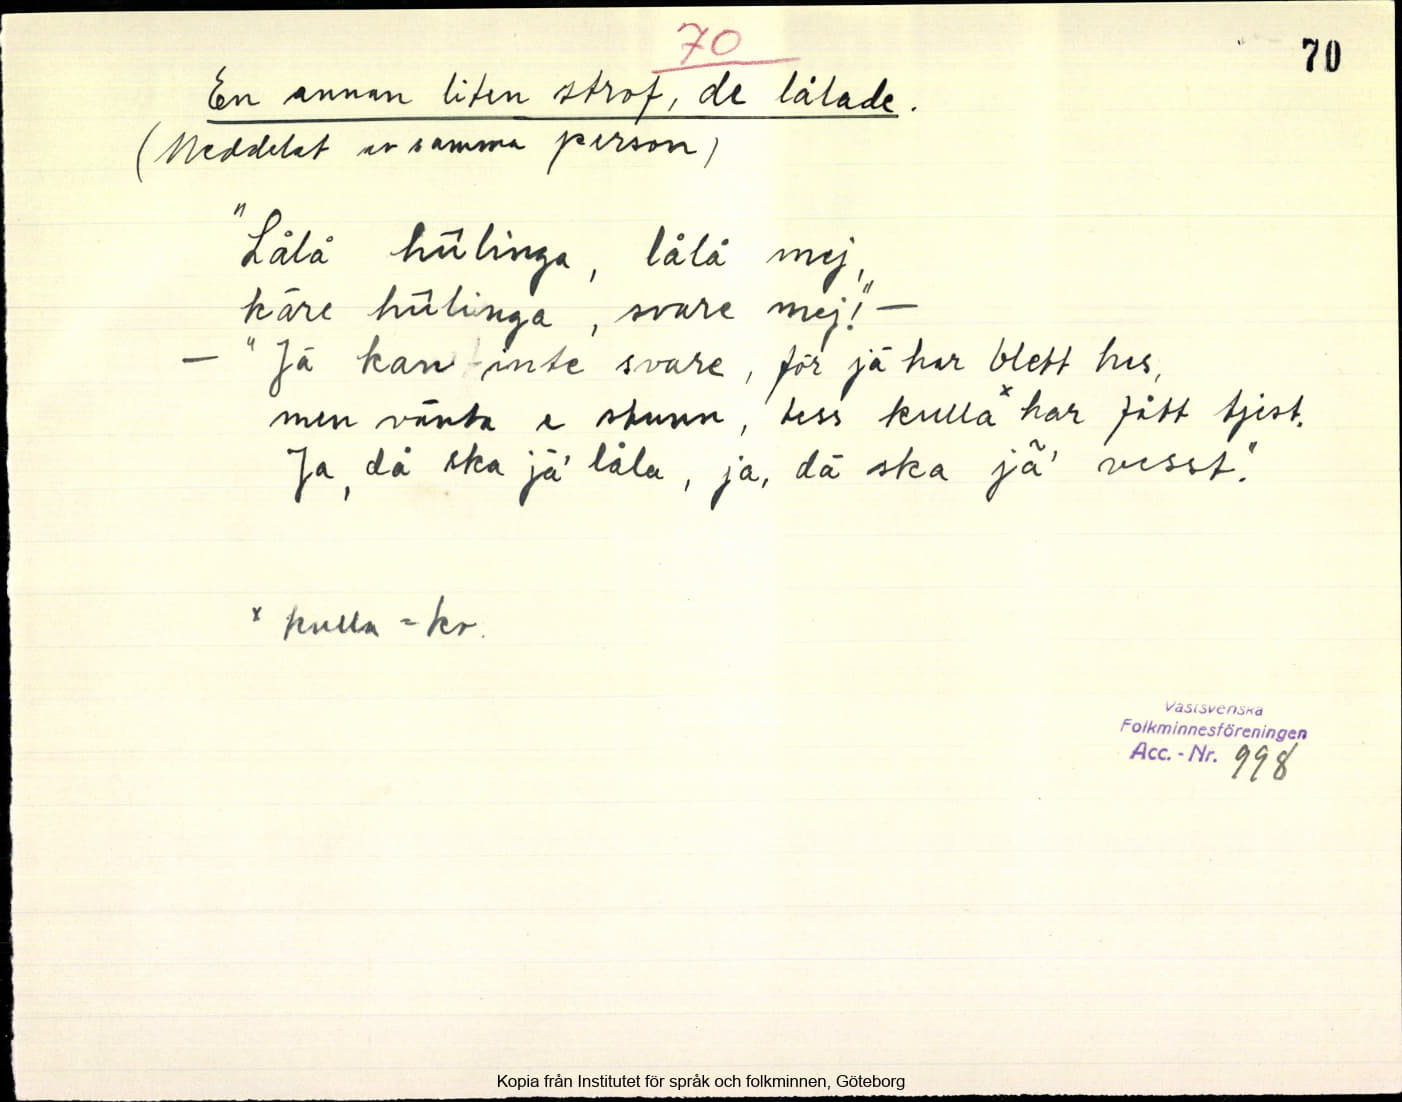 70
70
En annan liten strof, de lålade.
(Meddelat av samma person)
"Lålå hûlinga, lålå mej,
käre hûlinga, svare mej!" —
— "Jä kan inte svare, för jä har blett hes,
men vänta e stunn, tess kullaˣ har fått tjist.
Ja, då ska jä' låla, ja, dä ska jä' visst."
ˣ kulla = ko.
Västsvenska
Folkminnesföreningen
Acc. - Nr. 998
Kopia från Institutet för språk och folkminnen, Göteborg